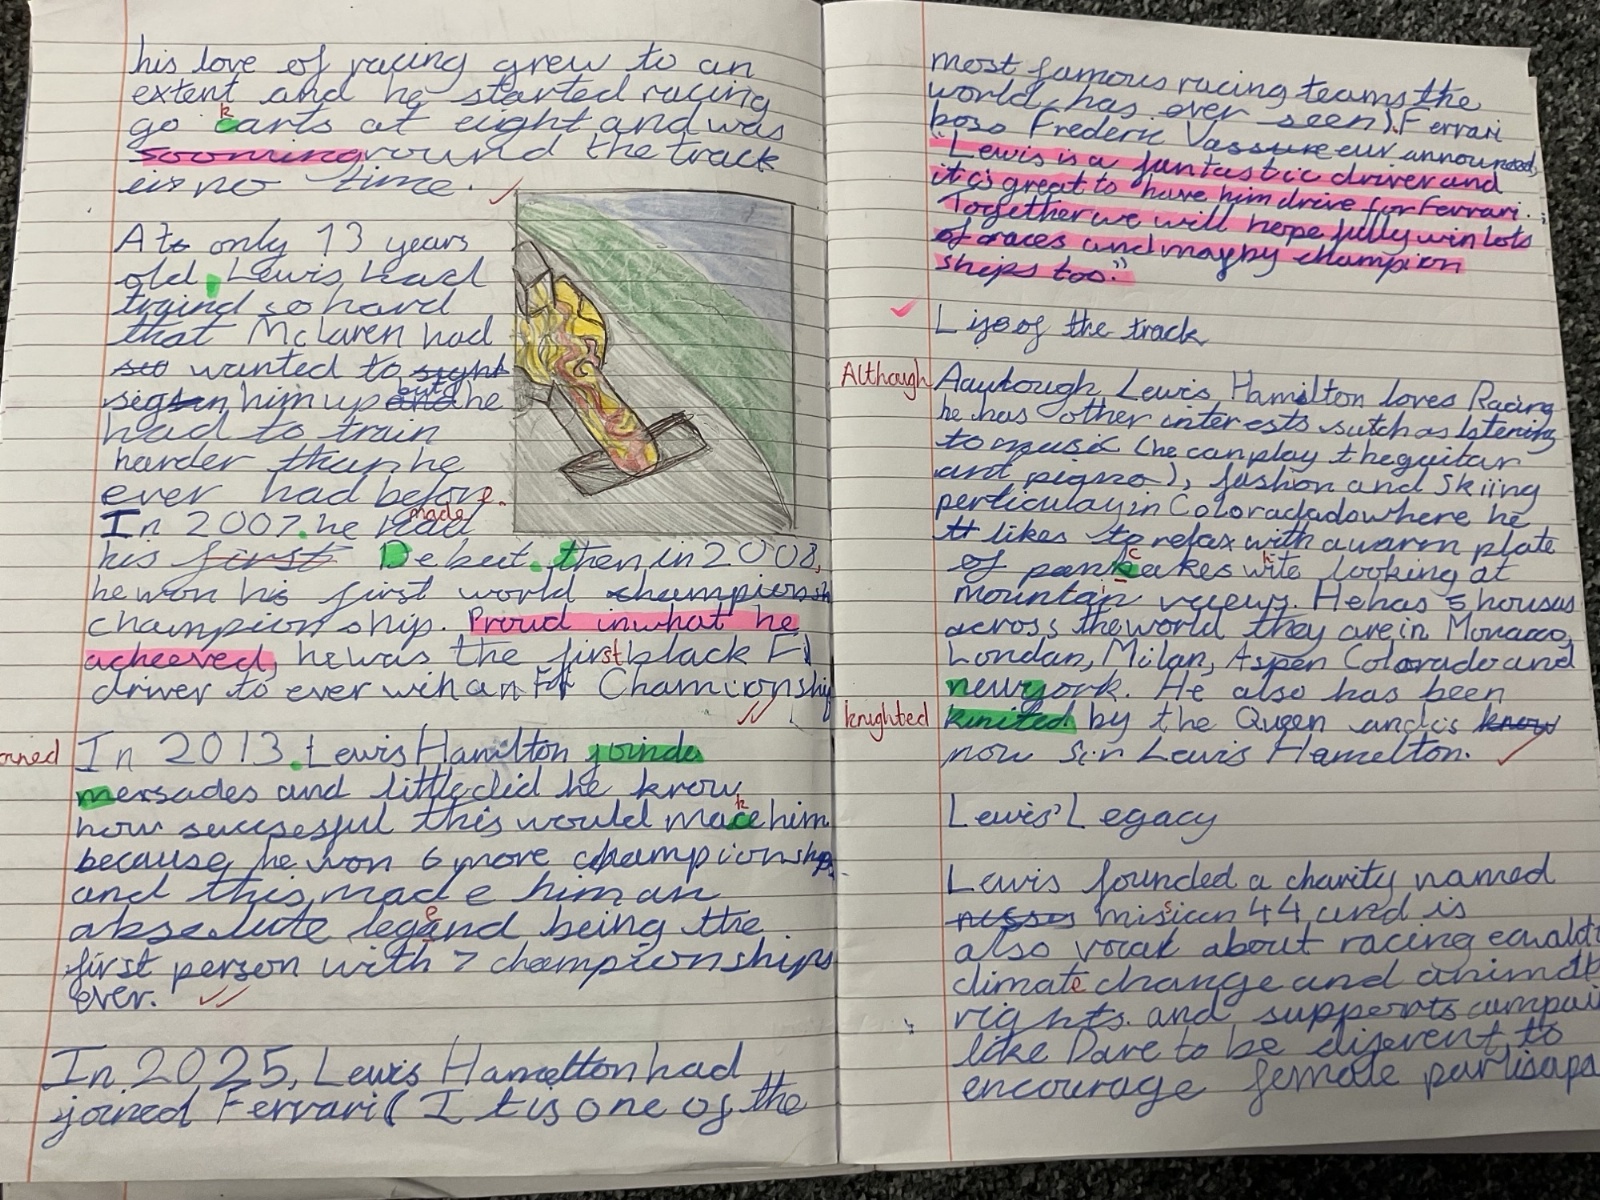 his love of racing grew to an
extent and he started racing
go karts at eight and was
zooming round the track
in no time.
At only 13 years
old, Lewis had
traind so hard
that McLaren had
so wanted to sight
sigsn him up but he
had to train
harder than he
ever had before.
In 2007. he made
his first Debut. then in 2008,
he won his first world champions
championship. Proud in what he
acheeved, he was the first black F1
driver to ever win an F1 Championship
In 2013. Lewis Hamilton joinde
mersades and little did he know
how succsesful this would make him
because he won 6 more championships
and this made him an
absolute legend being the
first person with 7 championships
ever.
In 2025, Lewis Hamelton had
joined Ferrari( It is one of the
most famous racing teams the
world has ever seen). Ferrari
boss Frederic Vassure eur announced,
"Lewis is a fantastic driver and
it is great to have him drive for Ferrari.
Together we will hopefully win lots
of races and mayby champion
ships too."
Life of the track
Although
Aaultough Lewis Hamilton loves Racing
he has other interests sutch as listening
to music (he can play the guitar
and pigno), fashion and skiing
perticulay in Coloradado where he
It likes to relax with a warm plate
of pancakes white looking at
mountain views. He has 5 houses
across the world they are in Monaco,
Londan, Milan, Aspen Colorado and
new york. He also has been
knighted
kinited by the Queen and is know
now sir Lewis Hamelton.
Lewis' Legacy
Lewis founded a charity named
mission 44 and is
also vocal about racing
climate change and animal
rights. and supports campai
like Dare to be diferent to
encourage female partisapa